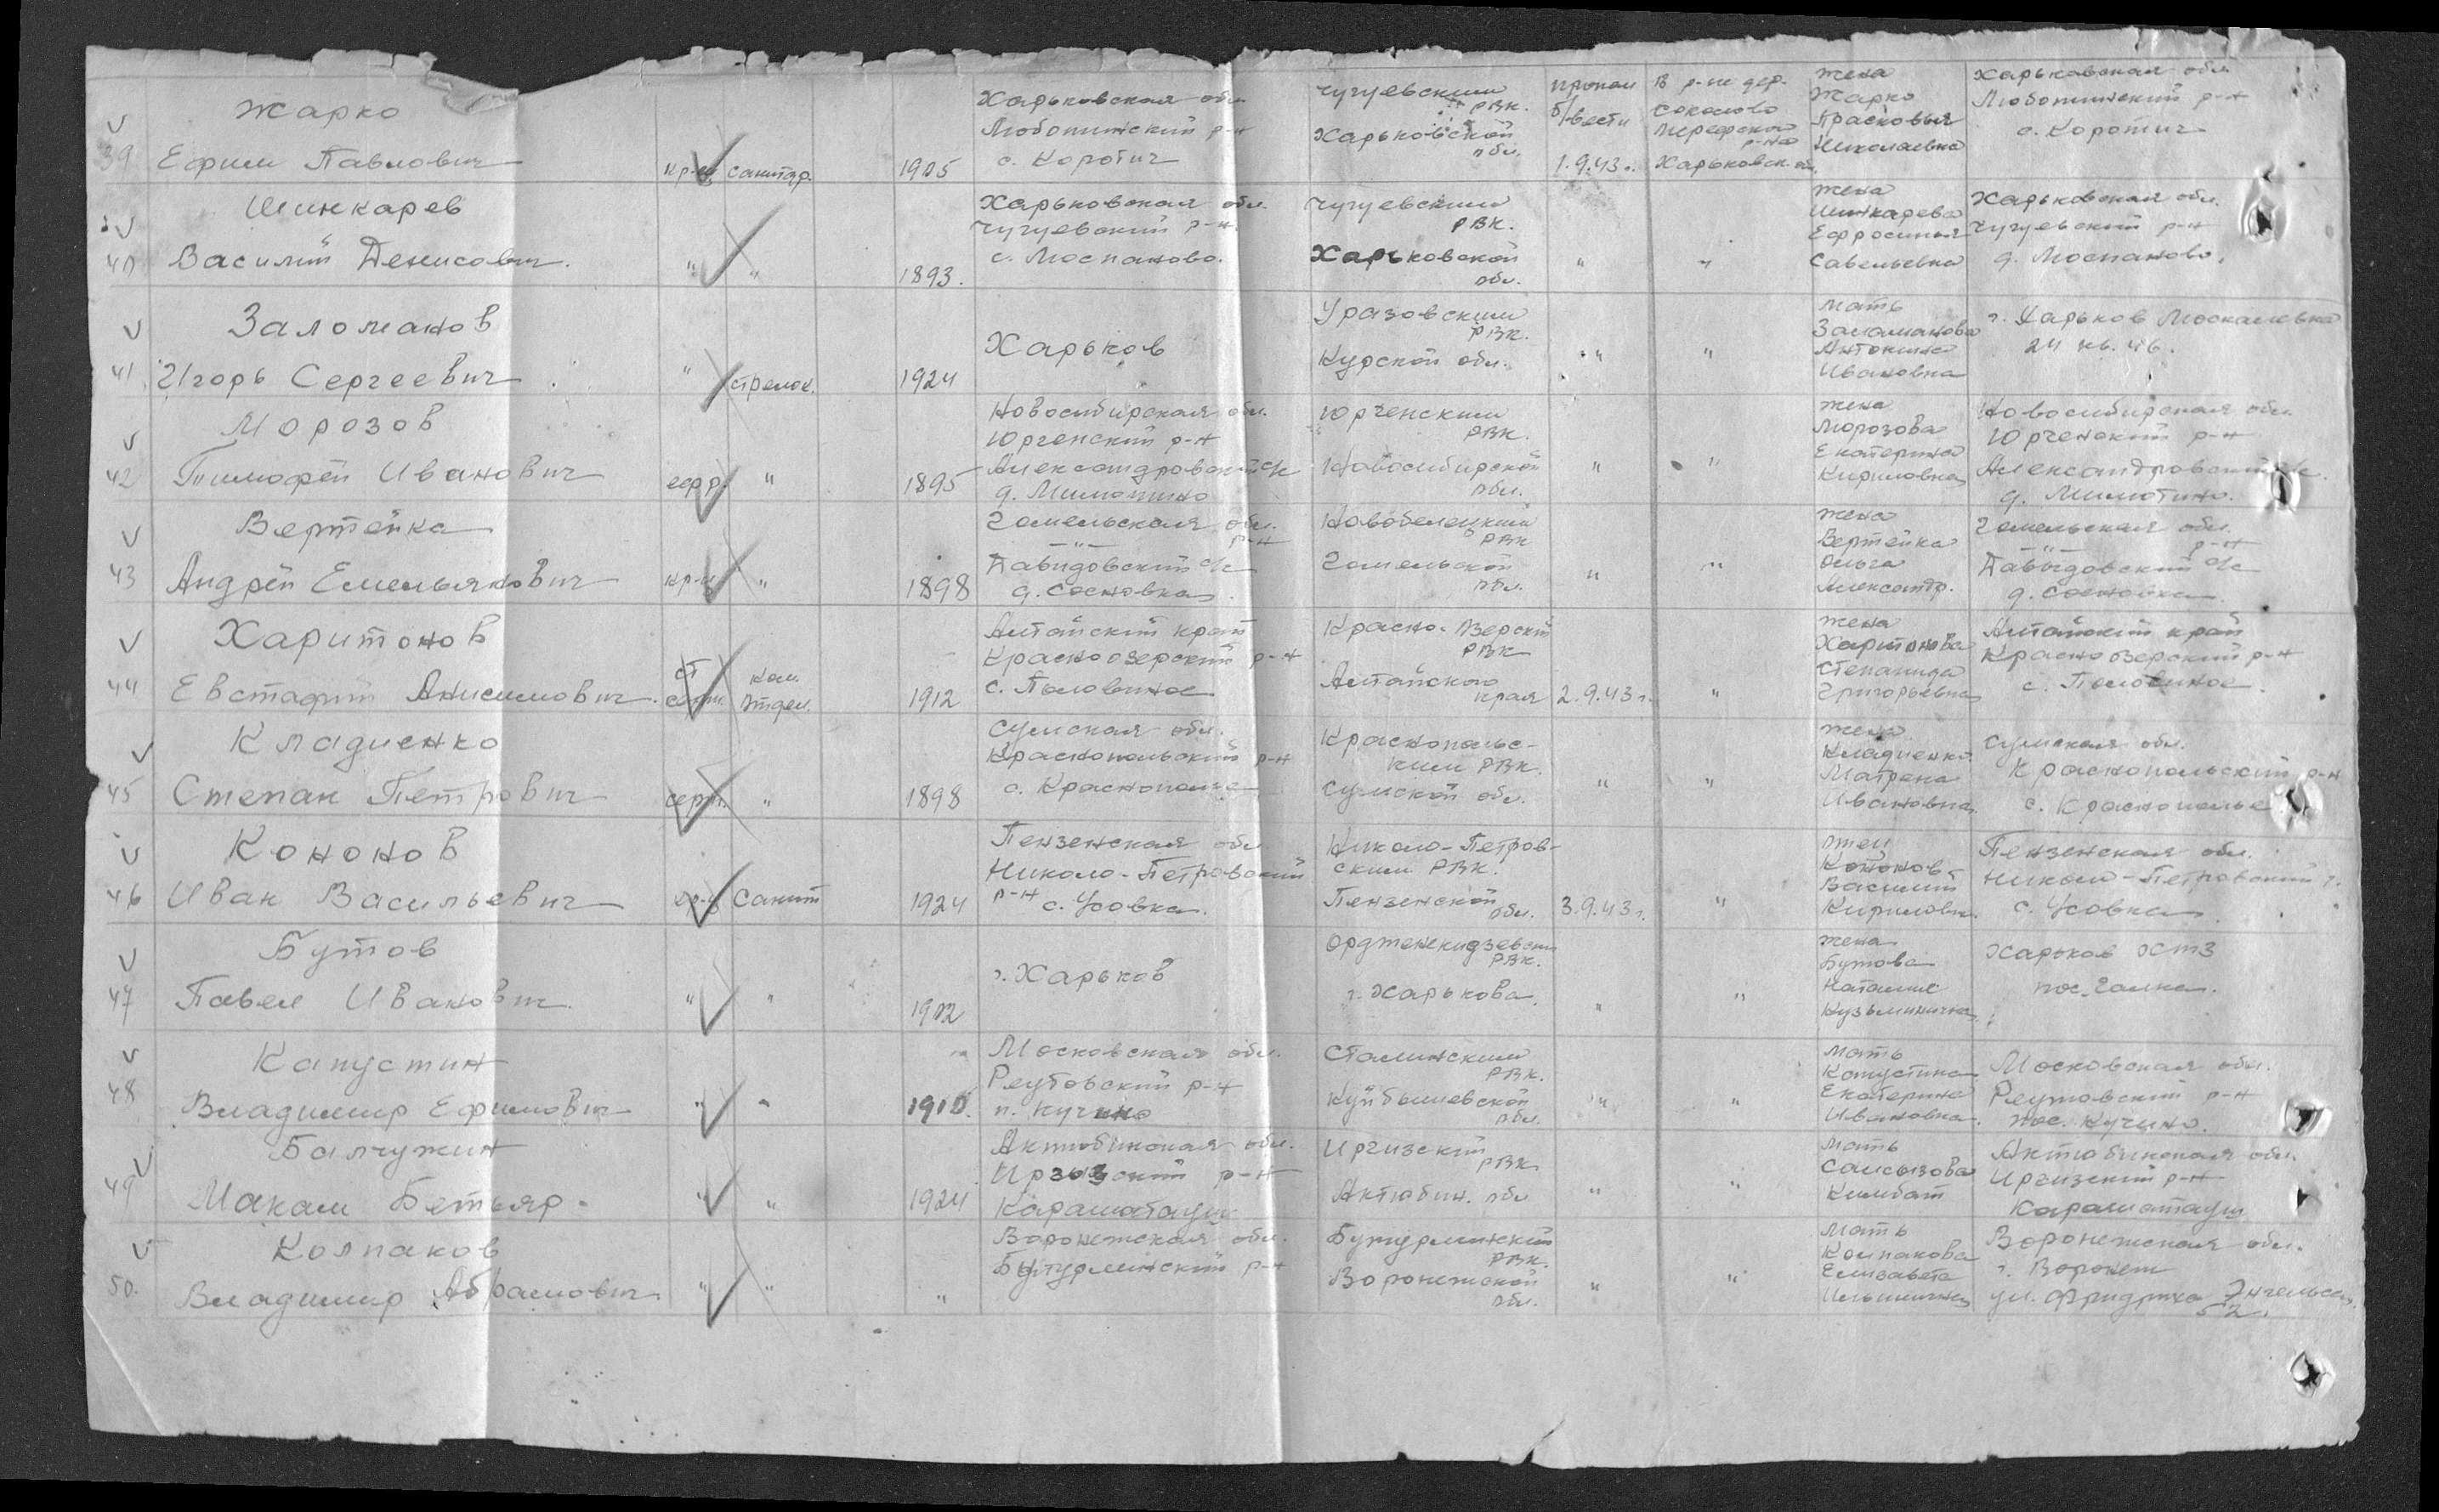 Жарко
39. Ефим Павлович
кр-ец санитар.
1905
Харьковская обл.
Люботинский р-н
с. Коротич
Чугуевским
РВК.
Харьковской
обл.
пропал
б/вести
1.9.43 г.
В р-не дер.
Соколово
Мерефского
р-на
Харьковск. обл.
жена
Жарко
Прасковья
Николаевна
Харьковская обл.
Люботинский р-н
с. Коротич
Шинкарев
40 Василий Денисович.
" "
1893.
Харьковская обл.
Чугуевский р-н.
с. Моспаново.
Чугуевским
РВК.
Харьковской
обл.
" "
жена
Шинкарева
Ефросинья
Савельевна
Харьковская обл.
Чугуевский р-н
д. Моспаново.
Заломанов
41. Игорь Сергеевич
" стрелок.
1924
Харьков
Уразовским
РВК.
Курской обл.
" "
мать
Заломанова
Антонина
Ивановна
г. Харьков Москалевка
24 кв. 46.
Морозов
42 Тимофей Иванович
ефр. "
1895
Новосибирская обл.
Юргенский р-н
Александровский с/с
д. Милютино
Юргенским
РВК.
Новосибирской
обл.
" "
жена
Морозова
Екатерина
Кириловна
Новосибирская обл.
Юргенский р-н
Александровский с/с.
д. Милютино.
Вертейка
43 Андрей Емельянович
кр-ц "
1898
Гомельская обл.
—"— р-н
Давидовский с/с
д. Сосновка
Новобелецким
РВК
Гомельской
обл.
" "
жена
Вертейка
Ольга
Александр.
Гомельская обл.
—"— р-н
Давыдовский с/с
д. Сосновка.
Харитонов
44 Евстафий Анисимович.
ст
серж. ком.
отдел.
1912
Алтайский край
Краснозерский р-н
с. Половиное
Красно-Зерский
РВК
Алтайского
края
2.9.43 г. "
жена
Харитонова
Степанида
Григорьевна
Алтайский край
Краснозерский р-н
с. Половиное.
Кладиенко
45 Степан Петрович
серж. "
1898
Сумская обл.
Краснопольский р-н
с. Краснополье
Краснопольс-
ким РВК.
Сумской обл.
" "
жена
Кладиенко
Матрена
Ивановна
Сумская обл.
Краснопольский р-н
с. Краснополье
Кононов
46 Иван Васильевич
кр-ц санит
1924
Пензенская обл
Николо-Петровский
р-н с. Усовка.
Николо-Петров-
ским РВК.
Пензенской
обл.
3.9.43 г. "
отец
Кононов
Василий
Кирилович.
Пензенская обл.
Николо-Петровский р.
с. Усовка.
Бутов
47 Павел Иванович.
" "
1902
г. Харьков
Орджоникидзевским
РВК.
г. Харькова.
" "
жена
Бутова
Наталия
Кузьминична.
Харьков ХСТЗ
Капустин
48 Владимир Ефимович
" "
1910.
Московская обл.
Реутовский р-н
п. Кучино
Сталинским
РВК.
Куйбышевской
обл.
" "
мать
Капустина
Екатерина
Ивановна.
Московская обл.
Реутовский р-н
пос. Кучино.
Балчужин
49 Макам Бетьяр-
" "
1924
Актюбинская обл.
р-н
Караматауш
Иргизский
РВК
Актюбин. обл
" "
мать
Салсызова
Килибат
Актюбинская обл.
Иргизский р-н
Караматауш
Колпаков
50. Владимир Абрамович
" "
"
Воронежская обл.
Бутурлинский р-н
Бутурлинский
РВК.
Воронежской
обл.
" "
мать
Колпакова
Елизавета
Ильинична
Воронежская обл.
г. Воронеж
ул. Фридриха Энгельса.
52.